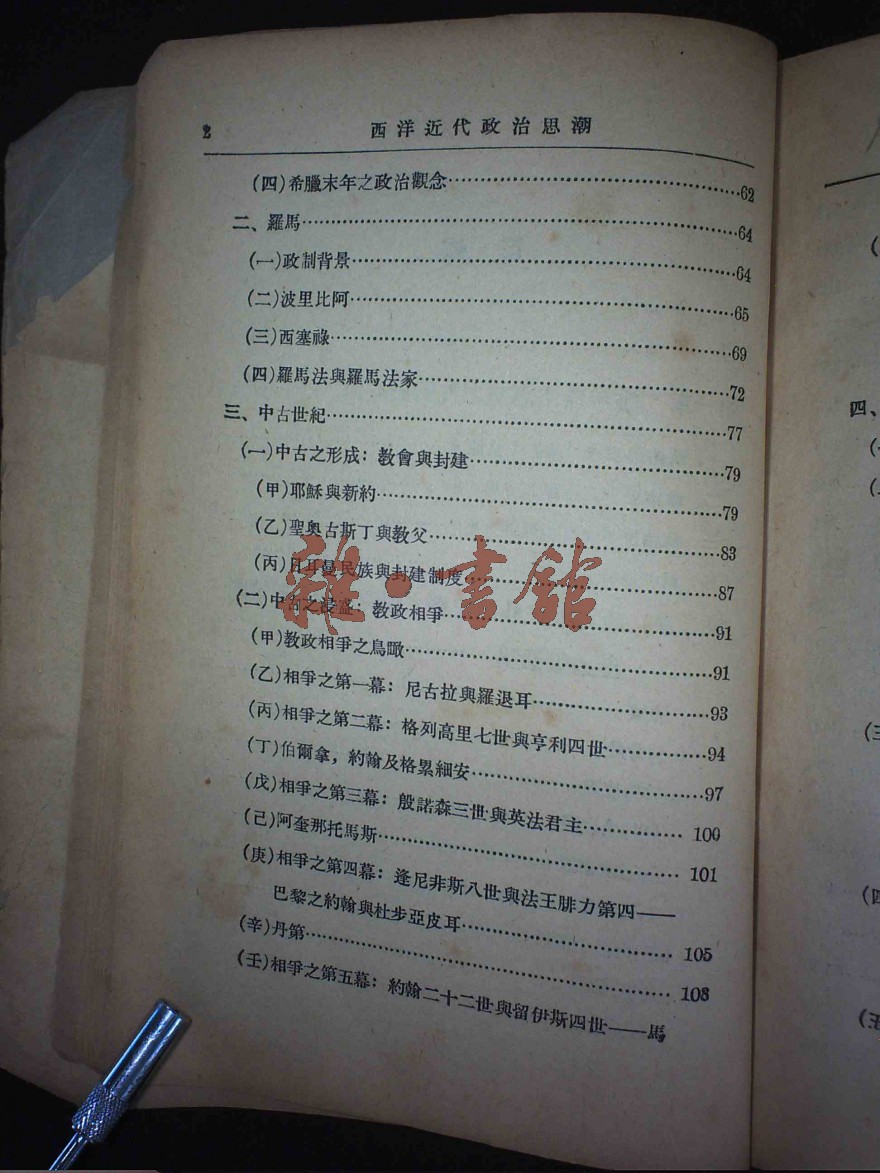 2 西洋近代政治思潮
(四)希臘末年之政治觀念……62
二、羅馬……64
(一)政制背景……64
(二)波里比阿……65
(三)西塞祿……69
(四)羅馬法與羅馬法家……72
三、中古世紀……77
(一)中古之形成：教會與封建……79
(甲)耶穌與新約……79
(乙)聖奧古斯丁與教父……83
(丙)日耳曼民族與封建制度……87
(二)中古之浸盛：教政相爭……91
(甲)教政相爭之鳥瞰……91
(乙)相爭之第一幕：尼古拉與羅退耳……93
(丙)相爭之第二幕：格列高里七世與亨利四世……94
(丁)伯爾拿，約翰及格累細安……97
(戊)相爭之第三幕：殷諾森三世與英法君主……100
(己)阿奎那托馬斯……101
(庚)相爭之第四幕：逢尼非斯八世與法王腓力第四——
巴黎之約翰與杜步亞皮耳……105
(辛)丹第……108
(壬)相爭之第五幕：約翰二十二世與留伊斯四世——馬
雜·書館
四、